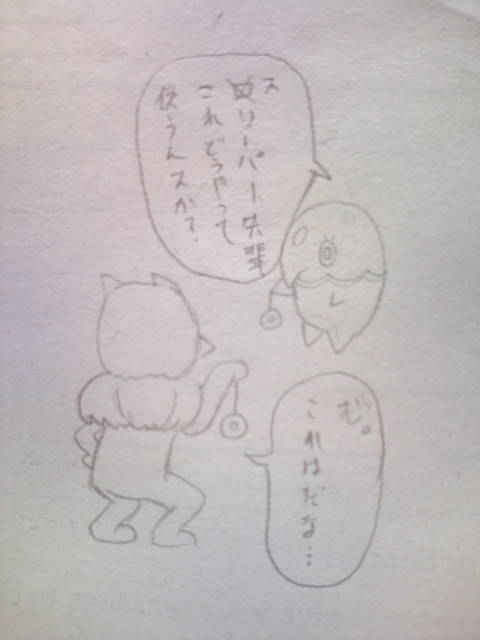 スリーパー先輩
これどうやって
使うんスか?
む。
これはだな…